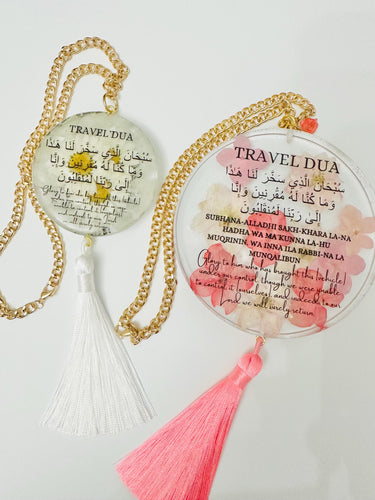 TRAVEL DUA
سُبْحَانَ الَّذِي سَخَّرَ لَنَا هَذَا
وَمَا كُنَّا لَهُ مُقْرِنِينَ وَإِنَّا
إِلَى رَبِّنَا لَمُنْقَلِبُونَ
Glory to him who has brought this vehicle
TRAVEL DUA
سُبْحَانَ الَّذِي سَخَّرَ لَنَا هَذَا
وَمَا كُنَّا لَهُ مُقْرِنِينَ وَإِنَّا
إِلَى رَبِّنَا لَمُنْقَلِبُونَ
SUBHANA-ALLADHI SAKH-KHARA LA-NA
HADHA WA MA KUNNA LA-HU
MUQRININ, WA INNA ILA RABBI-NA LA
MUNQALIBUN
Glory to him who has brought this (vehicle)
under our control, though we were unable
to control it (ourselves), and indeed to our
Lord we will surely return.